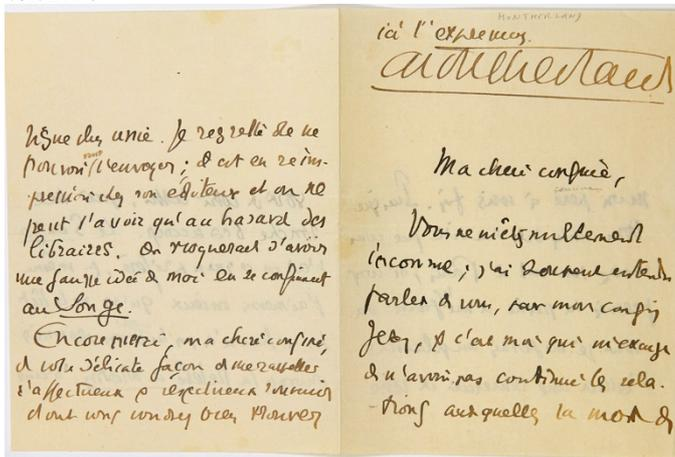 Je regrette de ne
pouvoir vous l'envoyer ; il est en réim-
pression chez son éditeur et on ne
peut l'avoir qu'au hasard des
libraires. On risquerait d'avoir
une fausse idée de moi en se confinant
au Songe.
Encore merci, ma chère cousine,
de votre délicate façon de me rappeler
& respectueux souvenir
dont vous voudrez bien trouver
MONTHERLAND
ici l'expression.
Montherlant
Ma chère cousine,
Vous ne m'êtes nullement
inconnue ; j'ai souvent entendu
parler de vous, par mon cousin
& c'est moi qui m'excuse
de n'avoir pas continué les rela-
tions auxquelles la mort de